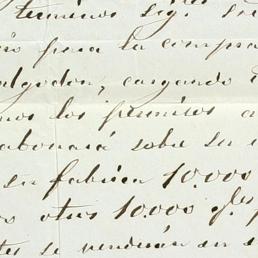 terminos sigs. Se
para la compra
algodon, cargando
los premios a
abonará sobre su
su fabrica 10.000
os otros 10.000 qles
tes se venderán en